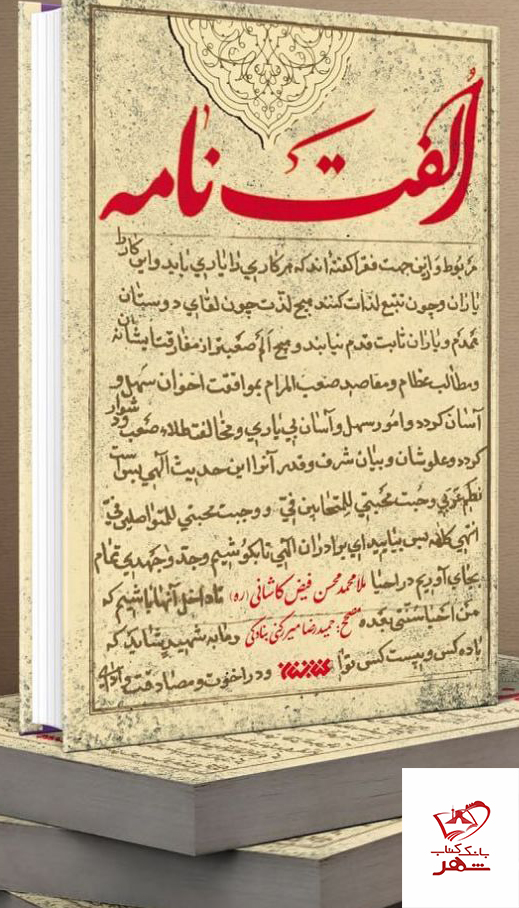 الفت نامه
مربوط و ازین جهت فقرا گفته‌اند که هر کاری را یاری باید و این کار را
یاران و چون تتبع لذات کنند هیچ لذت چون لقای دوستان
همدم و یاران ثابت قدم نیابند و هیچ الم صعبتر از مفارقت ایشان نه
و مطالب عظام و مقاصد صعب المرام بموافقت اخوان سهل و
آسان گردد و امور سهل و آسان بی یاری و مخالفت صعب دشوار
گردد و علو شان و بیان شرف و قدر آنرا این حدیث الهی بس است
وجبت محبتی للمتحابین فیّ و وجبت محبتی للمتواصلین فیّ
انتهی کلامه پس بیایید ای برادران الهی تا بکوشیم و جد و جهدی تمام
بجای آوریم در احیا ملا محمد محسن فیض کاشانی (ره) تا داخل آنها باشیم که
من احیا سنتی بعده مصحح: حمیدرضا میررکنی بنادکی و مثابه شهید شاید که
یا ده کس و بیست کس و در اخوت و مصادقت
بانک کتاب
شهر